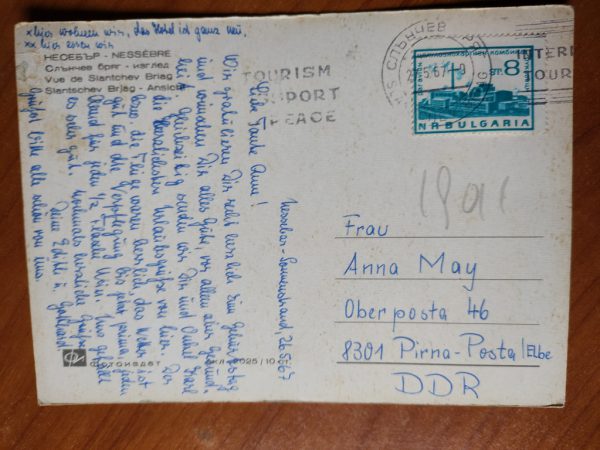 x hier wohnen wir, das Hotel ist ganz neu.
xx hier essen wir
НЕСЕБЪР - NESSÈBRE
Слънчев бряг - изглед
Vue de Slantchev Briag
Slantschev Brjag - Ansicht
TOURISM
PASSPORT
PEACE
СЛЪНЧЕВ
26.5.67
INTERN
TOUR
8
НР BULGARIA
Nessebar-Sonnenstrand, 26.5.67
Liebe Tante Anna!
Wir gratulieren Dir recht herzlich zum Geburtstag
und wünschen Dir alles Gute, vor allem aber Gesundheit.
Gleichzeitig senden wir Dir und Onkel Karl
die herzlichsten Urlaubsgrüße von hier. Der
Flug waren herrlich, das Wetter ist
gut und die Verpflegung bis jetzt prima, jeden
Abend für jeden 1/2 Flasche Wein. Uns gefällt
es sehr gut. Nochmals herzliche Grüße
Deine Edith u. Gotthard
Grüßt bitte alle schön von uns.
Frau
Anna May
Oberposta 46
8301 Pirna-Posta/Elbe
DDR
ФОТОИЗДАТ
2025/10